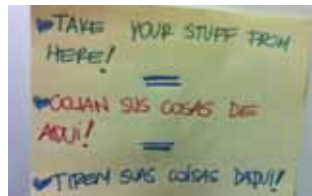 TAKE YOUR STUFF FROM
HERE!
COJAN SUS COSAS DE
AQUÍ!
TIREM SUAS COISAS DAQUI!